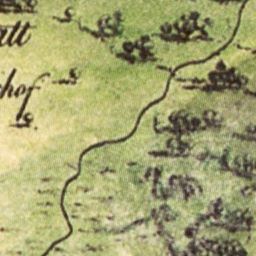 att
hof